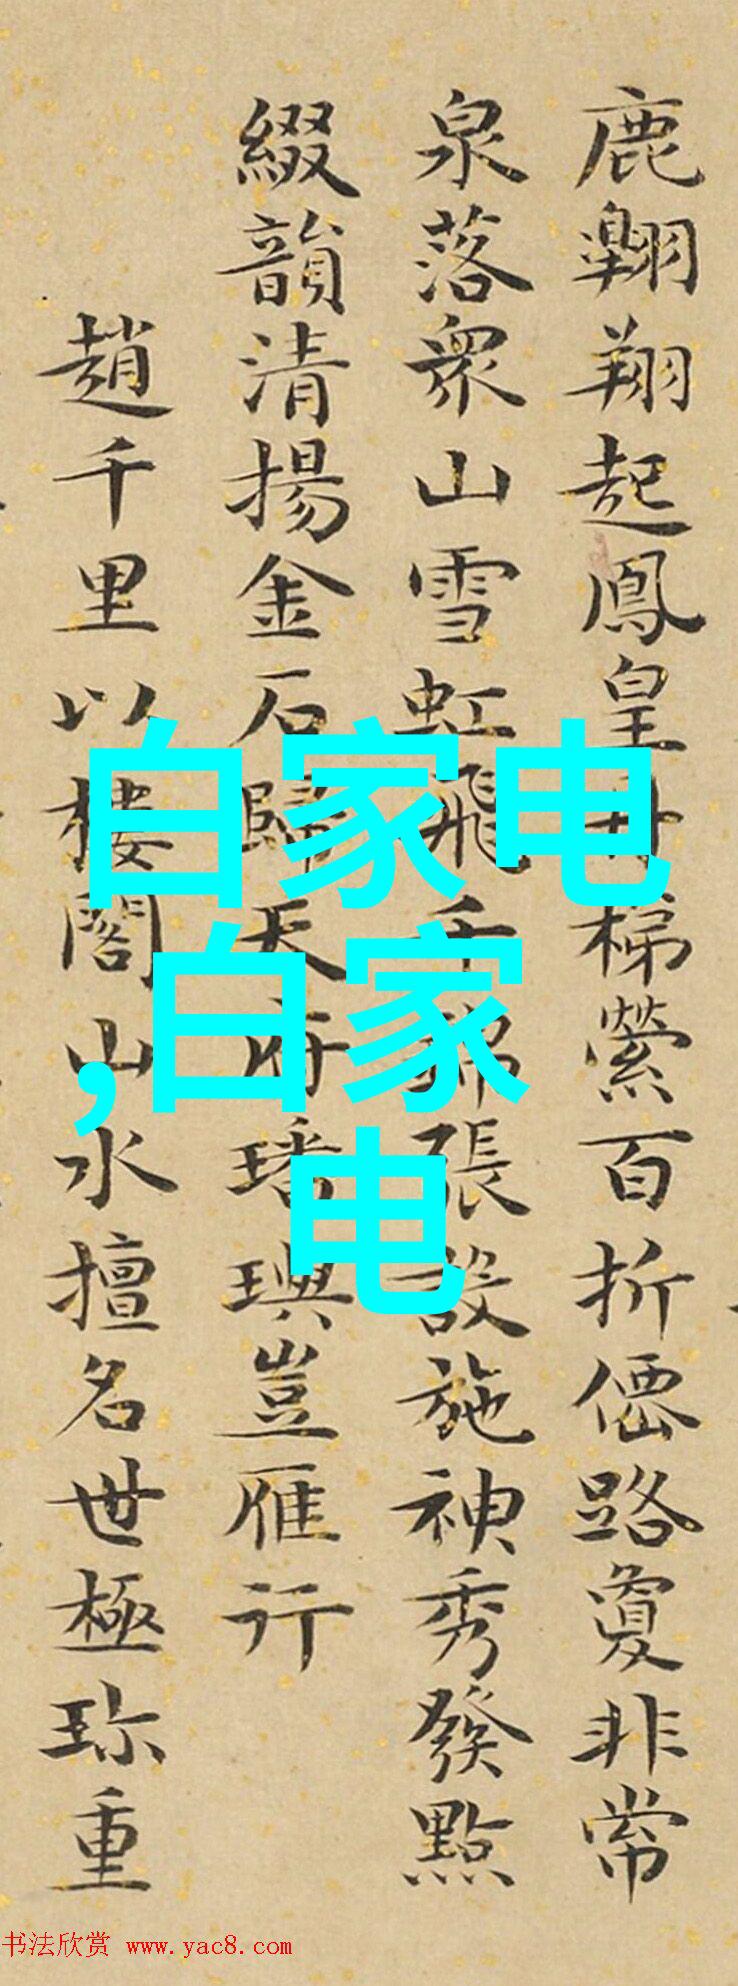 鹿翺翔起鳳皇丹梯縈百折僊路敻非常
泉落衆山雪虹飛千錦張設施神秀發點
綴韻清揚金石歸天府璠璵豈雁行
趙千里以樓閣山水擅名世極珎重
白家电
,白家
电
书法欣赏 www.yac8.com